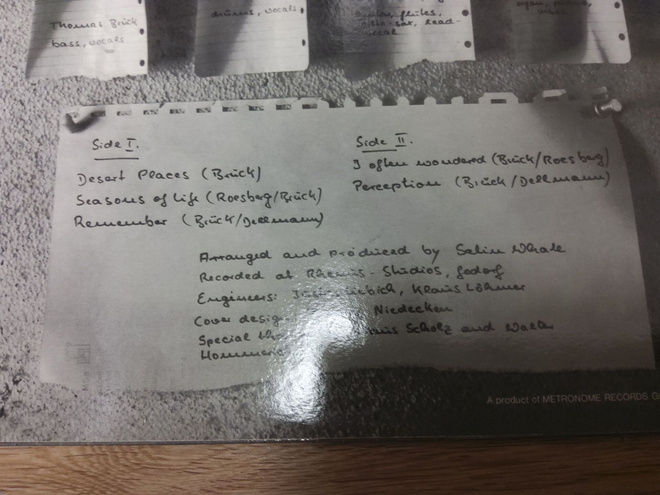 Thomas Brück
bass, vocals
drums, vocals
flutes,
lead-
Side I.
Desert Places (Brück)
Seasons of life (Roesberg/Brück)
Remember (Brück/Dellmann)
Side II.
I often wondered (Brück/Roesberg)
Perception (Brück/Dellmann)
Arranged and produced by Satin Whale
Recorded at Rhenus-Studios, Godorf
Engineers: Klaus Löhmer
Cover Niedecken
Special Scholz and
A product of METRONOME RECORDS